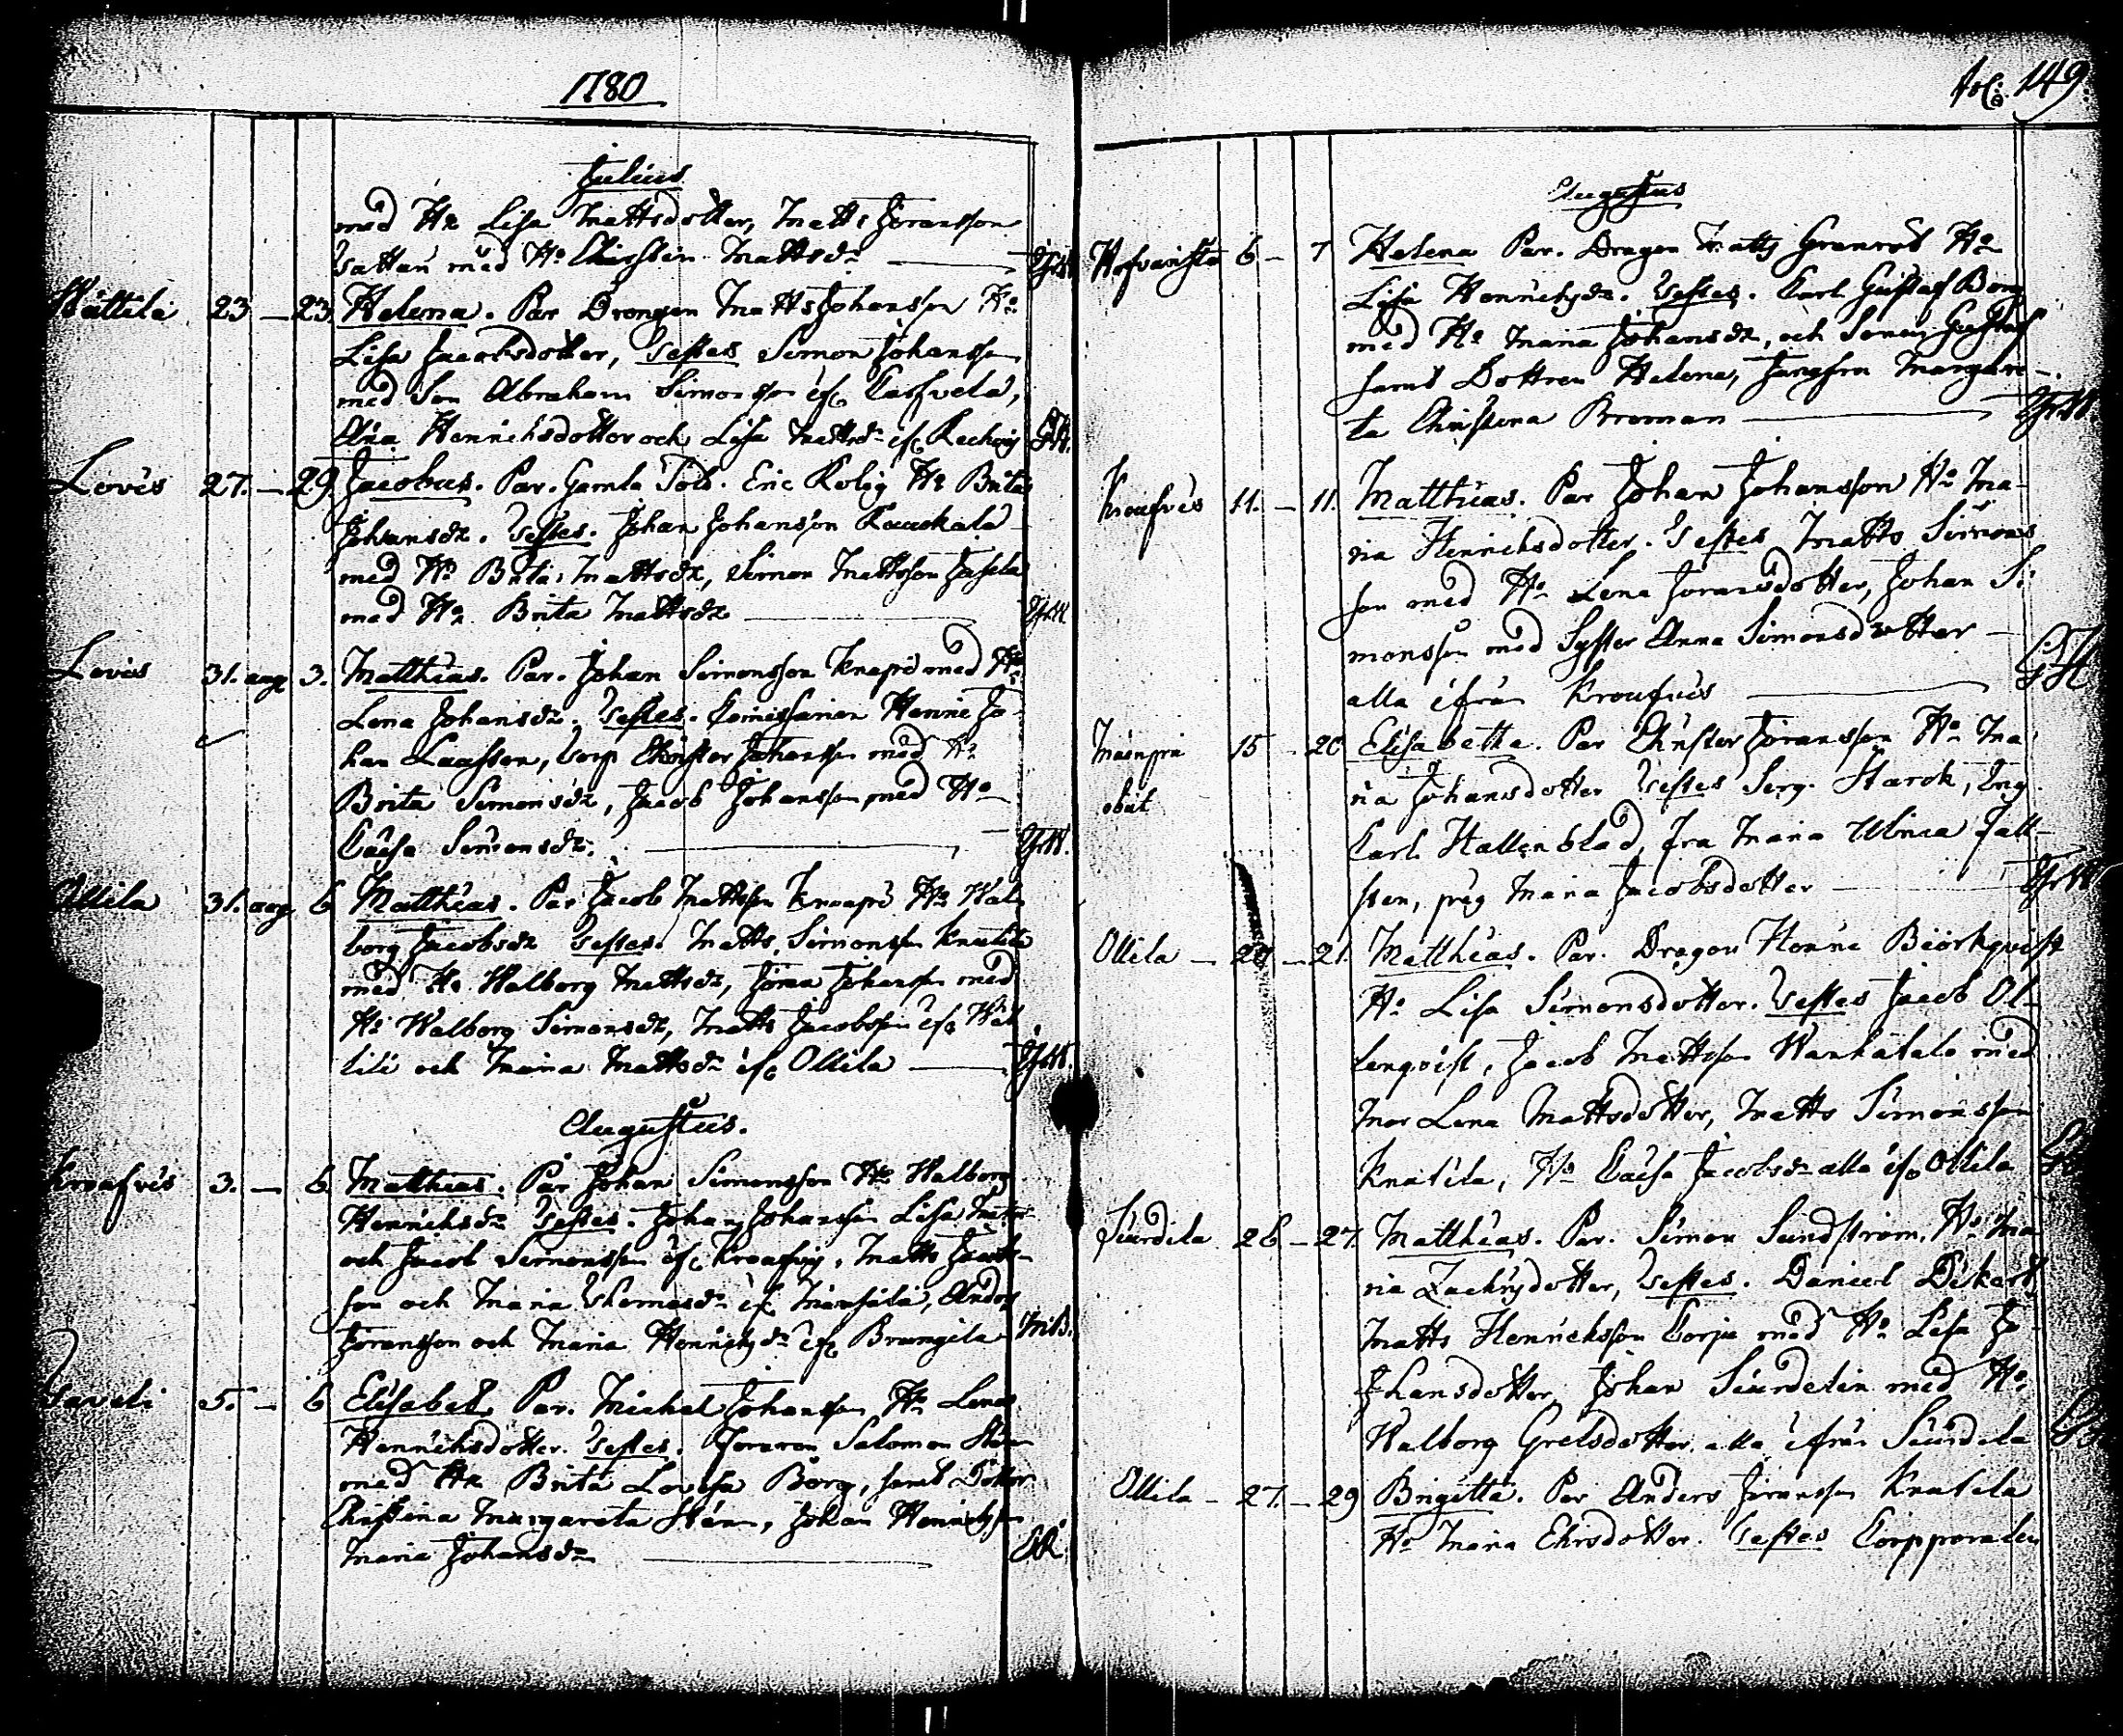 1780
Julius
med H: Lisa Mattsdotter, Matts Jöransson
med H: Christin Mattsdr
Wättilä 23 — 23. Helena. Par Drongen Matts Johansson H:
Lisa Jacobsdotter, Testes Simon Johansson
med Son Abraham Simonsson if:
Aña Henrichsdotter och Lisa Mattsdr if:
Lovis 27. — 29. Jacobus. Par. Gamla Sold. Eric Rolig H: Brita
Johansdr. Testes. Johan Johansson
med H: Brita Mattsdr, Simon Mattsson
med H: Brita Mattsdr
Lovis 31. aug 3. Matthias. Par. Johan Simonsson Knapi med H:
Lena Johansdr. Testes. Henric Jo-
han, Corp Christer Johansson med H:
Brita Simonsdr, Jacob Johansson med H:
Caisa Simonsdr.
Ollila 31. aug 6 Matthias. Par Jacob Mattsson Knaapi H: Wal-
borg Jacobsdr Testes. Matts Simonsson Knatila
med H: Walborg Mattsdr, Johansson med
H: Walborg Simonsdr, Matts Jacobsson if: Wät
tili och Maria Mattsdr if: Ollila
Augustus.
Kroufvis 3. — 6 Matthias. Par Johan Simonsson H: Walborg
Henrichsdr Testes. Johan Johansson Lisa
och Jacob Simonsson if:, Matts Jacobs-
son och Maria Thomasdr if:, Anders
Jöransson och Maria Henrichsdr if: MB.
Taveli 5. — 6 Elisabet. Par. Michel Johansson H: Lena
Henrichsdotter. Testes. Salomon
med H: Brita Lovisa Borg, samt Dotter
Christina Margareta, Johan Henrichsson
Maria Johansdr
Fol: 149
Augustus
6 — 7 Helena Par. Dragon Matts Granrot H:
Lisa Henrichsdr. Testes. Carl Gustaf Borg
med H: Maria Johansdr, och Sonen Gustaf
samt Dottren Helena, Jungfru Margare-
ta Christina Broman
Kroufvis 11. — 11. Matthias. Par Johan Johansson H: Ma-
ria Henrichsdotter. Testes Matts Simons
son med H: Lena Joransdotter, Johan Si
monsson med Syster Anna Simonsdotter
alla ifrån Kroufvis
15 — 20 Elisabetha. Par Christer Jöransson H: Ma
ria Johansdotter Testes Serg. Starck, Yng.
obiit
Carl Hallenblad, fru Maria Ulrica Fall-
sten, pig Maria Jacobsdotter
Ollila — 20 — 21. Matthias. Par. Dragon Henric Biörkqvist
H: Lisa Simonsdotter. Testes Jacob Ol-
lenqvist, Jacob Mattsson Wankatalo med
Mor Lena Mattsdotter, Matts Simonsson
Knatila, H: Caisa Jacobsdr alla if: Ollila
Siurdila 26 — 27. Matthias. Par. Simon Sundström, H: Ma
ria Zachrisdotter, Testes. Daniel Dikert,
Matts Henricksson Corja med H: Lisa Jo-
hansdotter, Johan Siurdelin med H:
Walborg Grelsdotter. alla ifrån Siurdila
Ollila — 27. — 29 Brigitta. Par Anders Jöransson Knatila
H: Maria Ehrsdotter. Testes Corpporalen